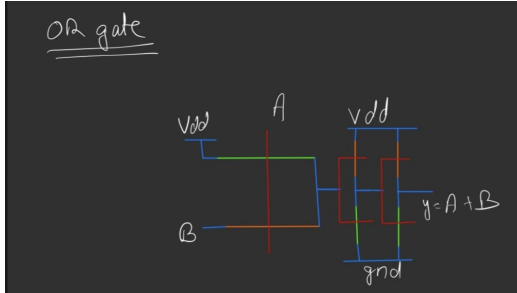 OR gate
A
Vdd
Vdd
B
y=A+B
gnd